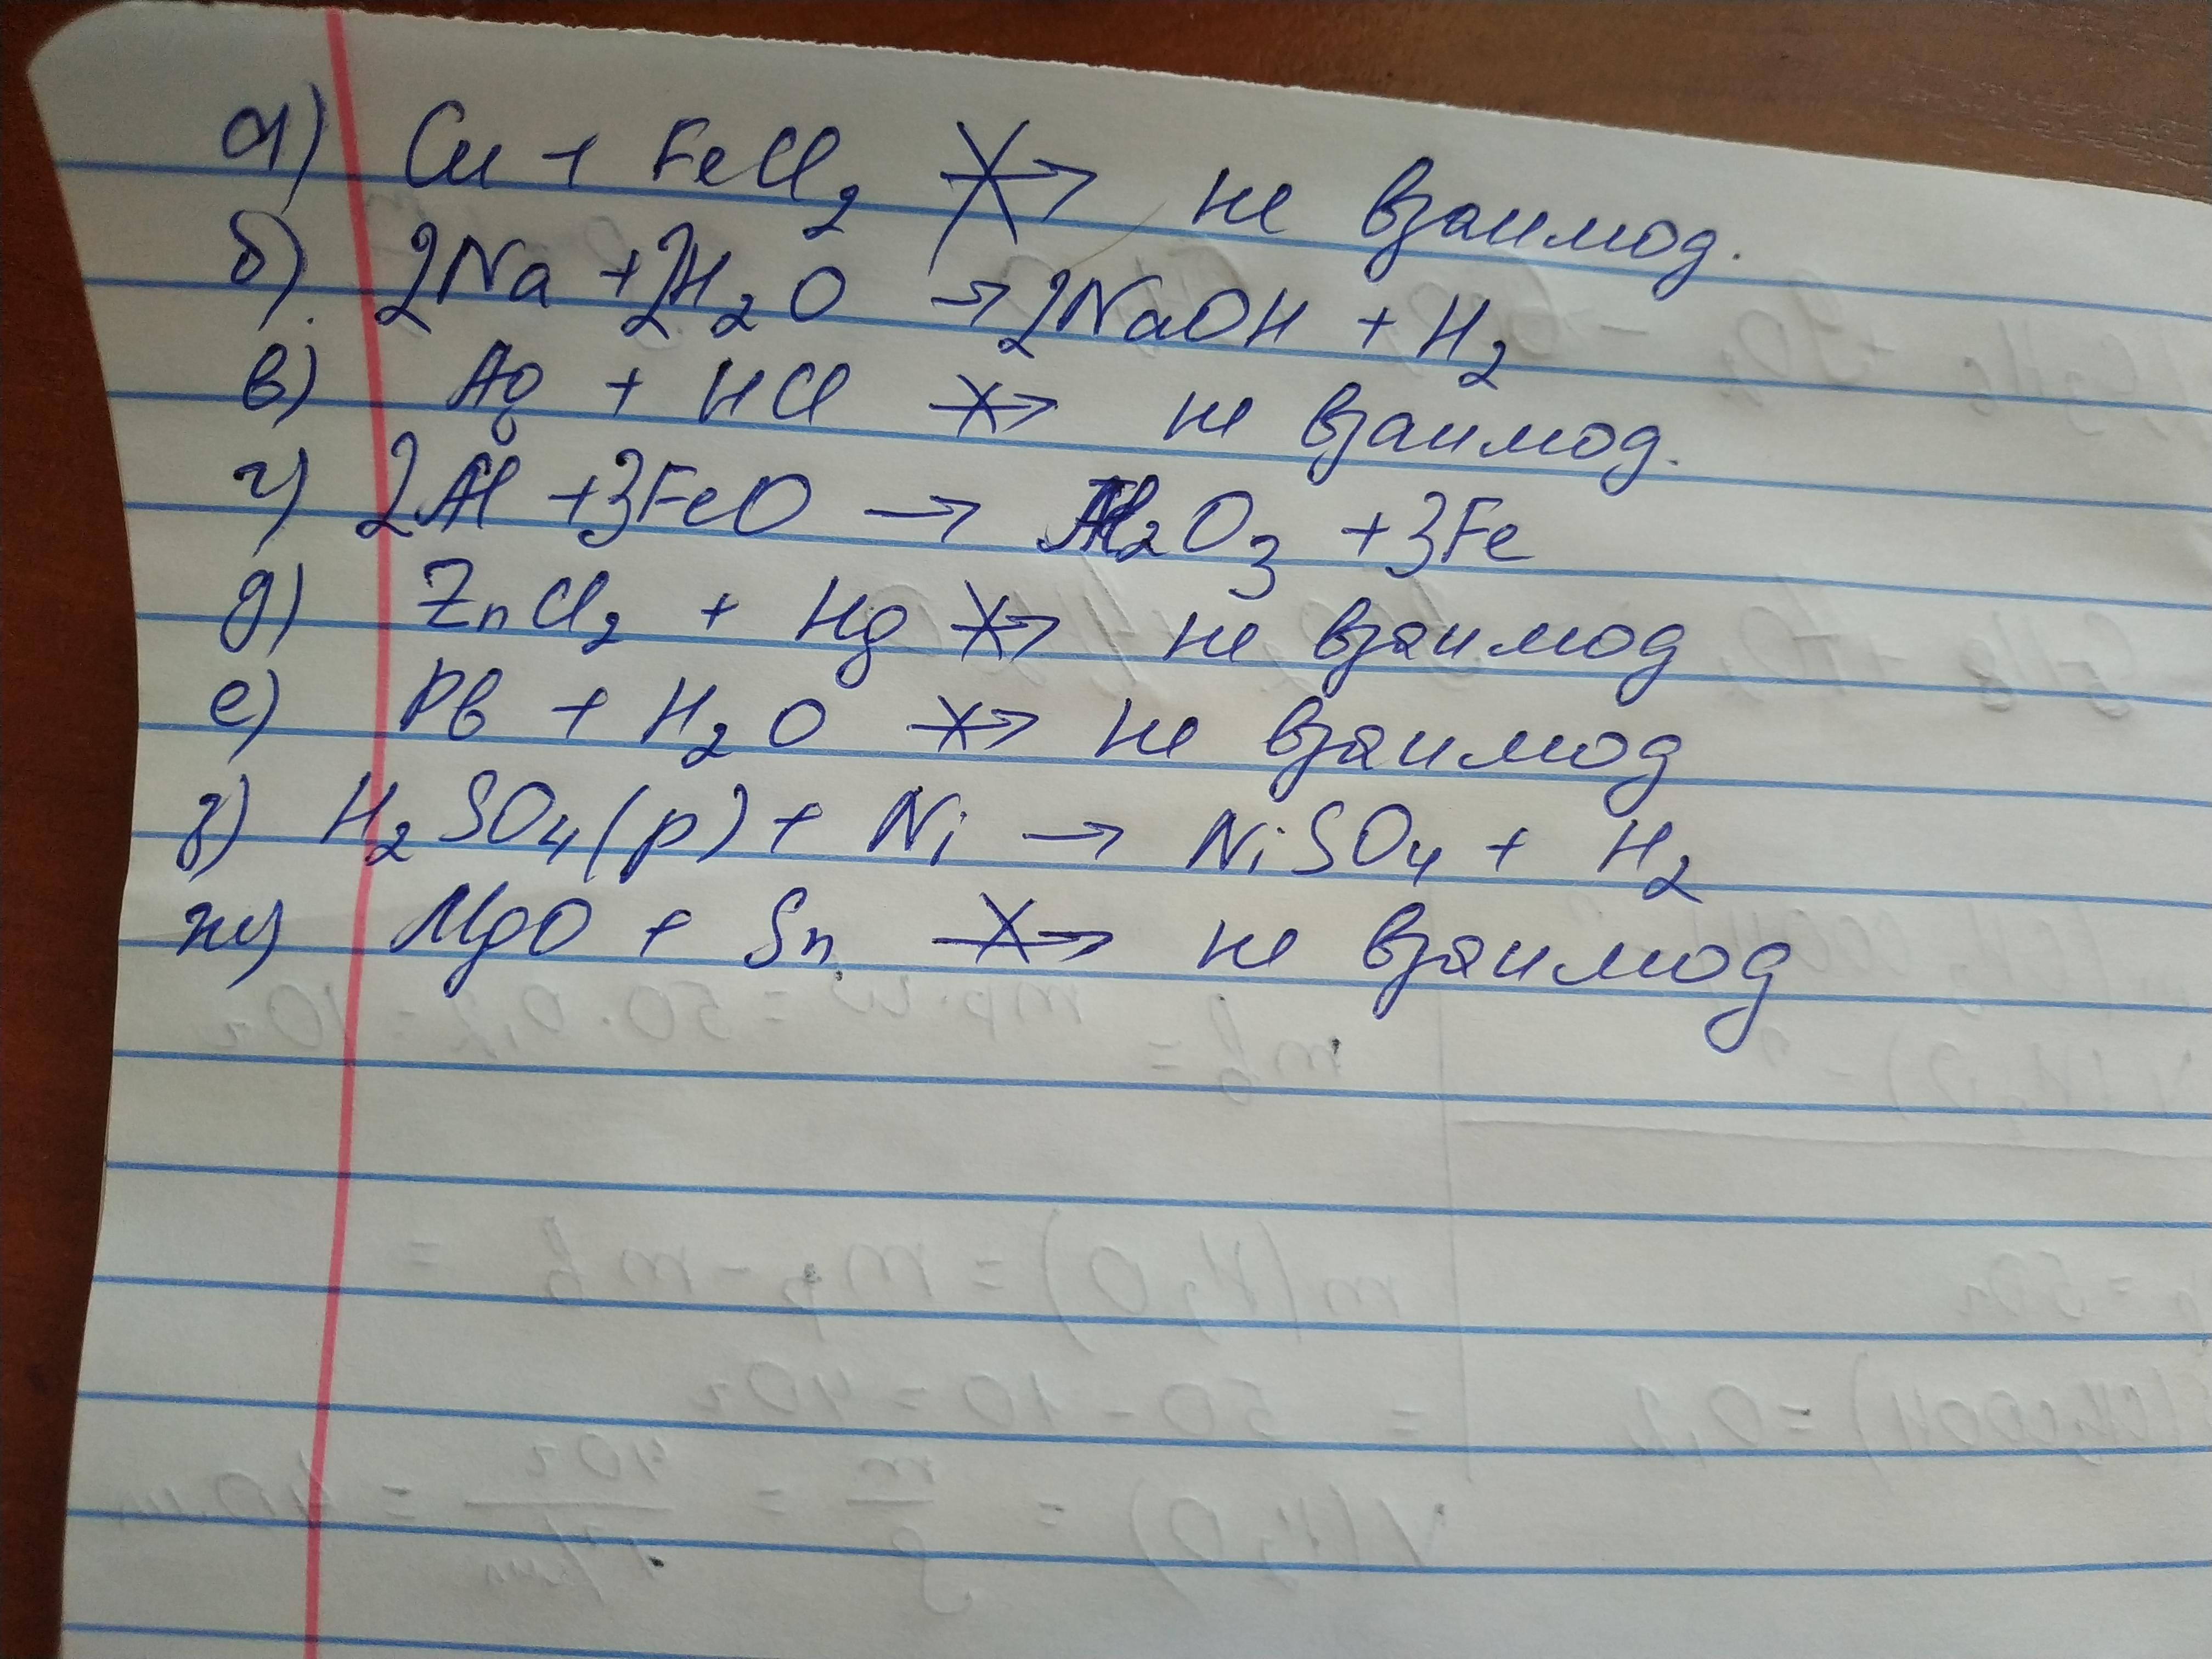 а) Cu + FeCl₂ ↛ не взаимод.
б) 2Na + 2H₂O → 2NaOH + H₂
в) Ag + HCl ↛ не взаимод.
г) 2Al + 3FeO → Al₂O₃ + 3Fe
д) ZnCl₂ + Hg ↛ не взаимод
е) Pb + H₂O ↛ не взаимод
з) H₂SO₄(р) + Ni → NiSO₄ + H₂
ж) MgO + Sn ↛ не взаимод